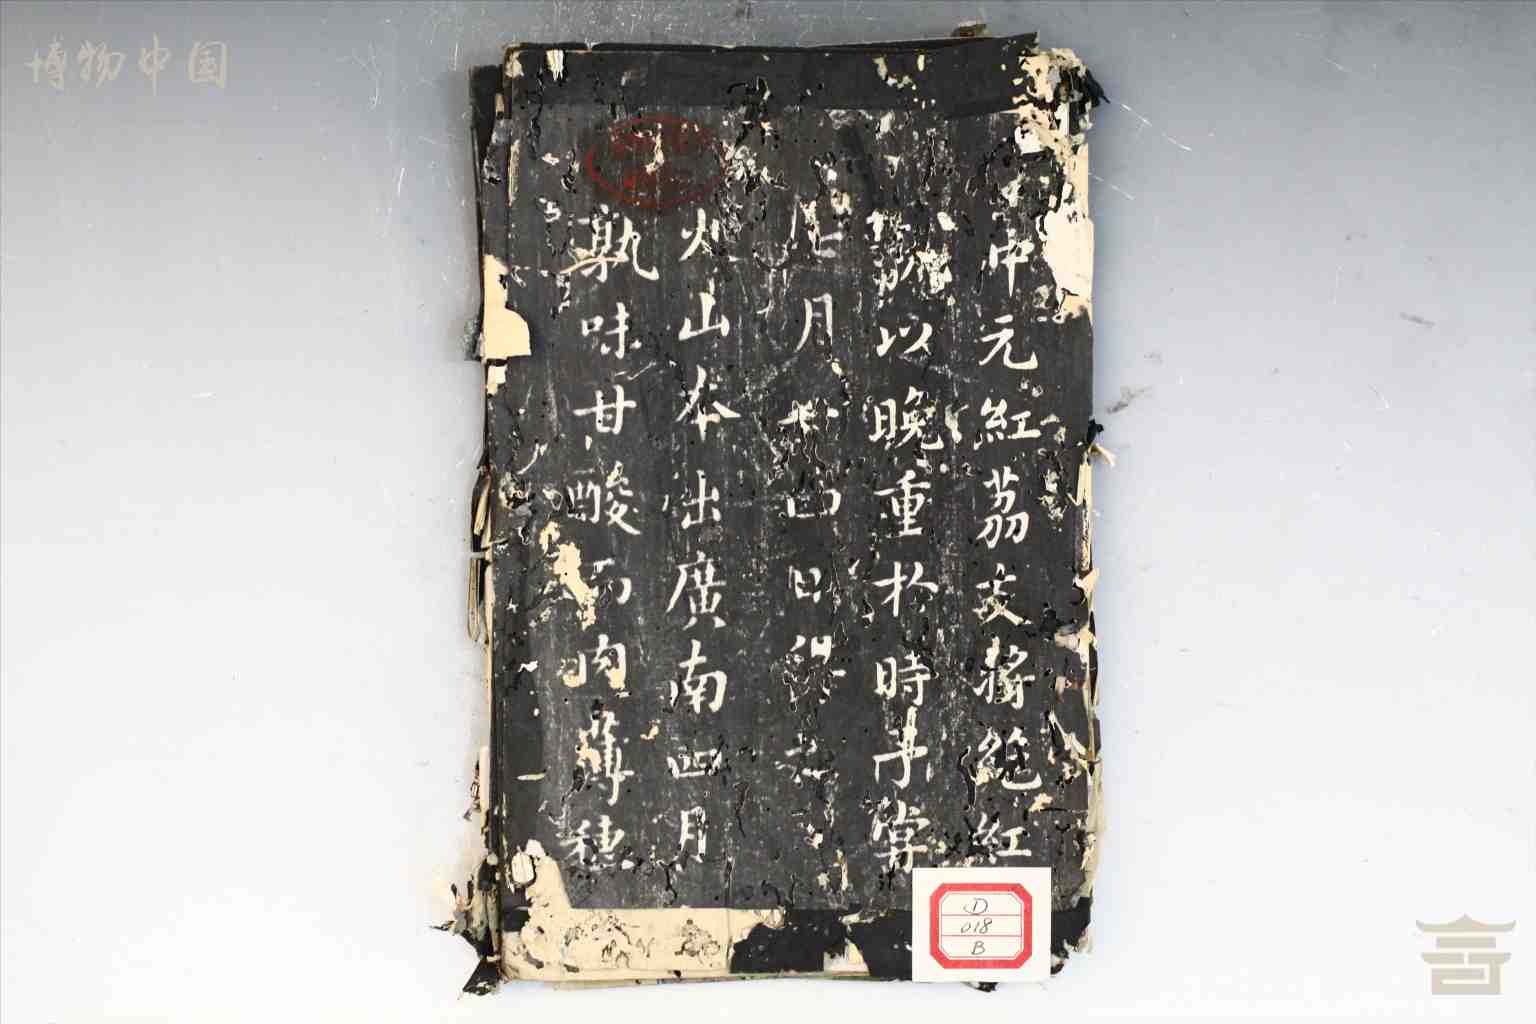 博物中国
中元紅荔支將絕紅
以晚重於時予嘗
月
火山本出廣南四月
孰味甘酸而肉薄穗
D
018
B